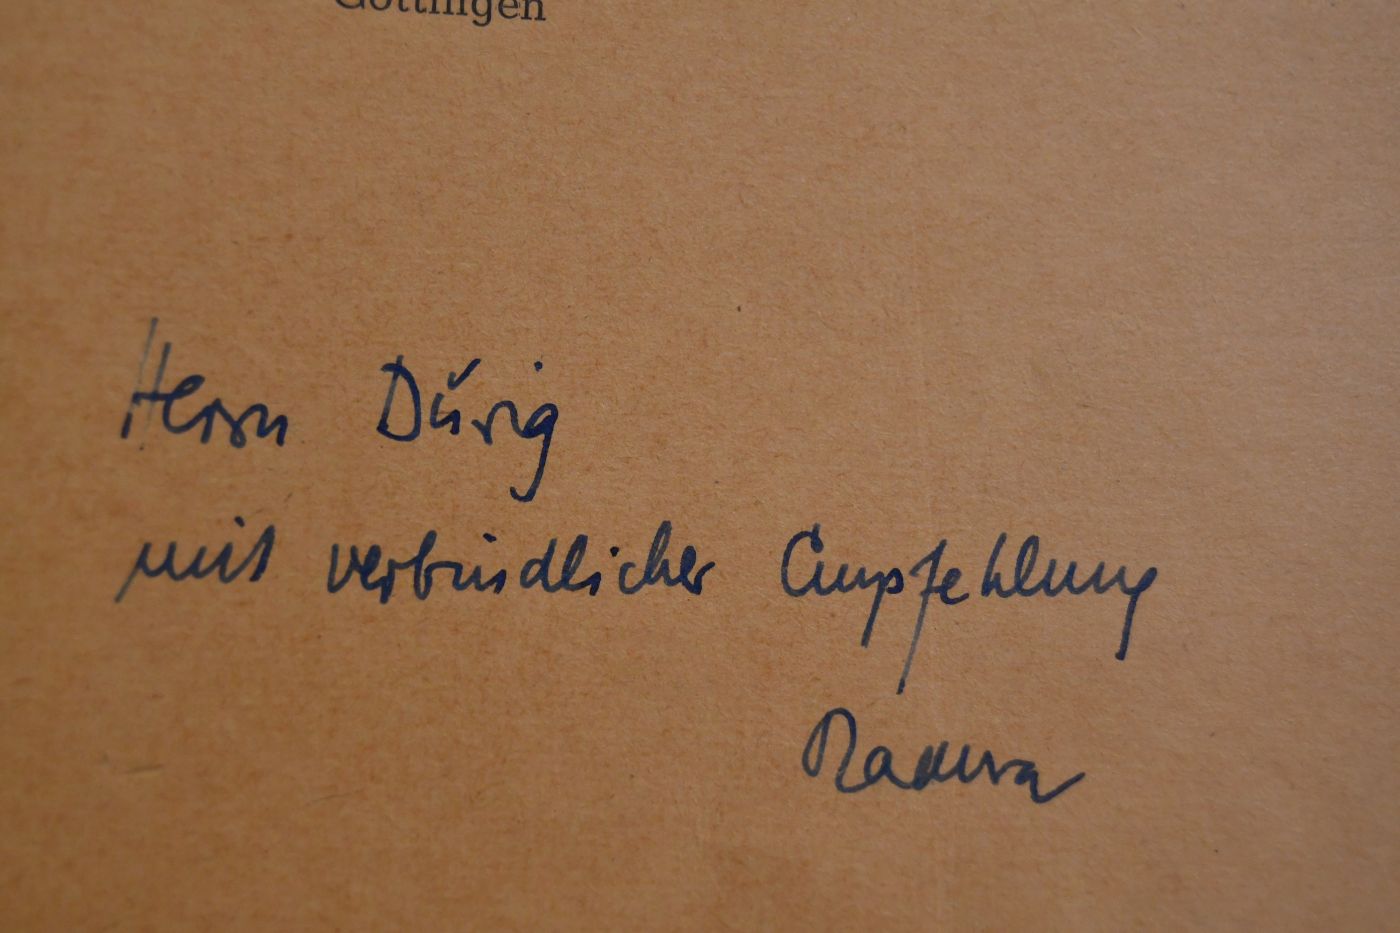 Göttingen
Herrn Dürig
mit verbindlicher Empfehlung